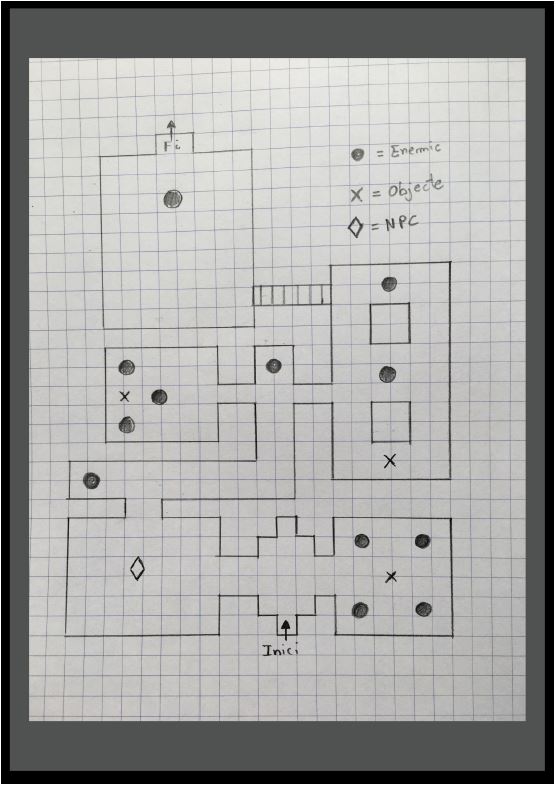 Fi
= Enemic
X = Objecte
= NPC
Inici